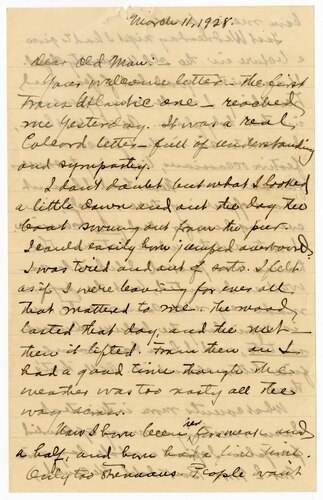 March 11, 1928.
Dear Old Man:
Your welcome letter - the first
Trans Atlantic one - reached
me yesterday. It was a real
Coleord letter - full of understanding
and sympathy.
I don't doubt but what I looked
a little down and out the day the
boat swung out from the pier.
I could easily have jumped overboard.
I was tired and out of sorts. I felt
as if I were leaving for ever all
that mattered to me. The mood
lasted that day, and the next -
then it lifted. From then on I
had a good time though the
weather was too nasty all the
way across.
Now I have been here for a week and
a half, and have had a fine time.
Only too strenuous. People want